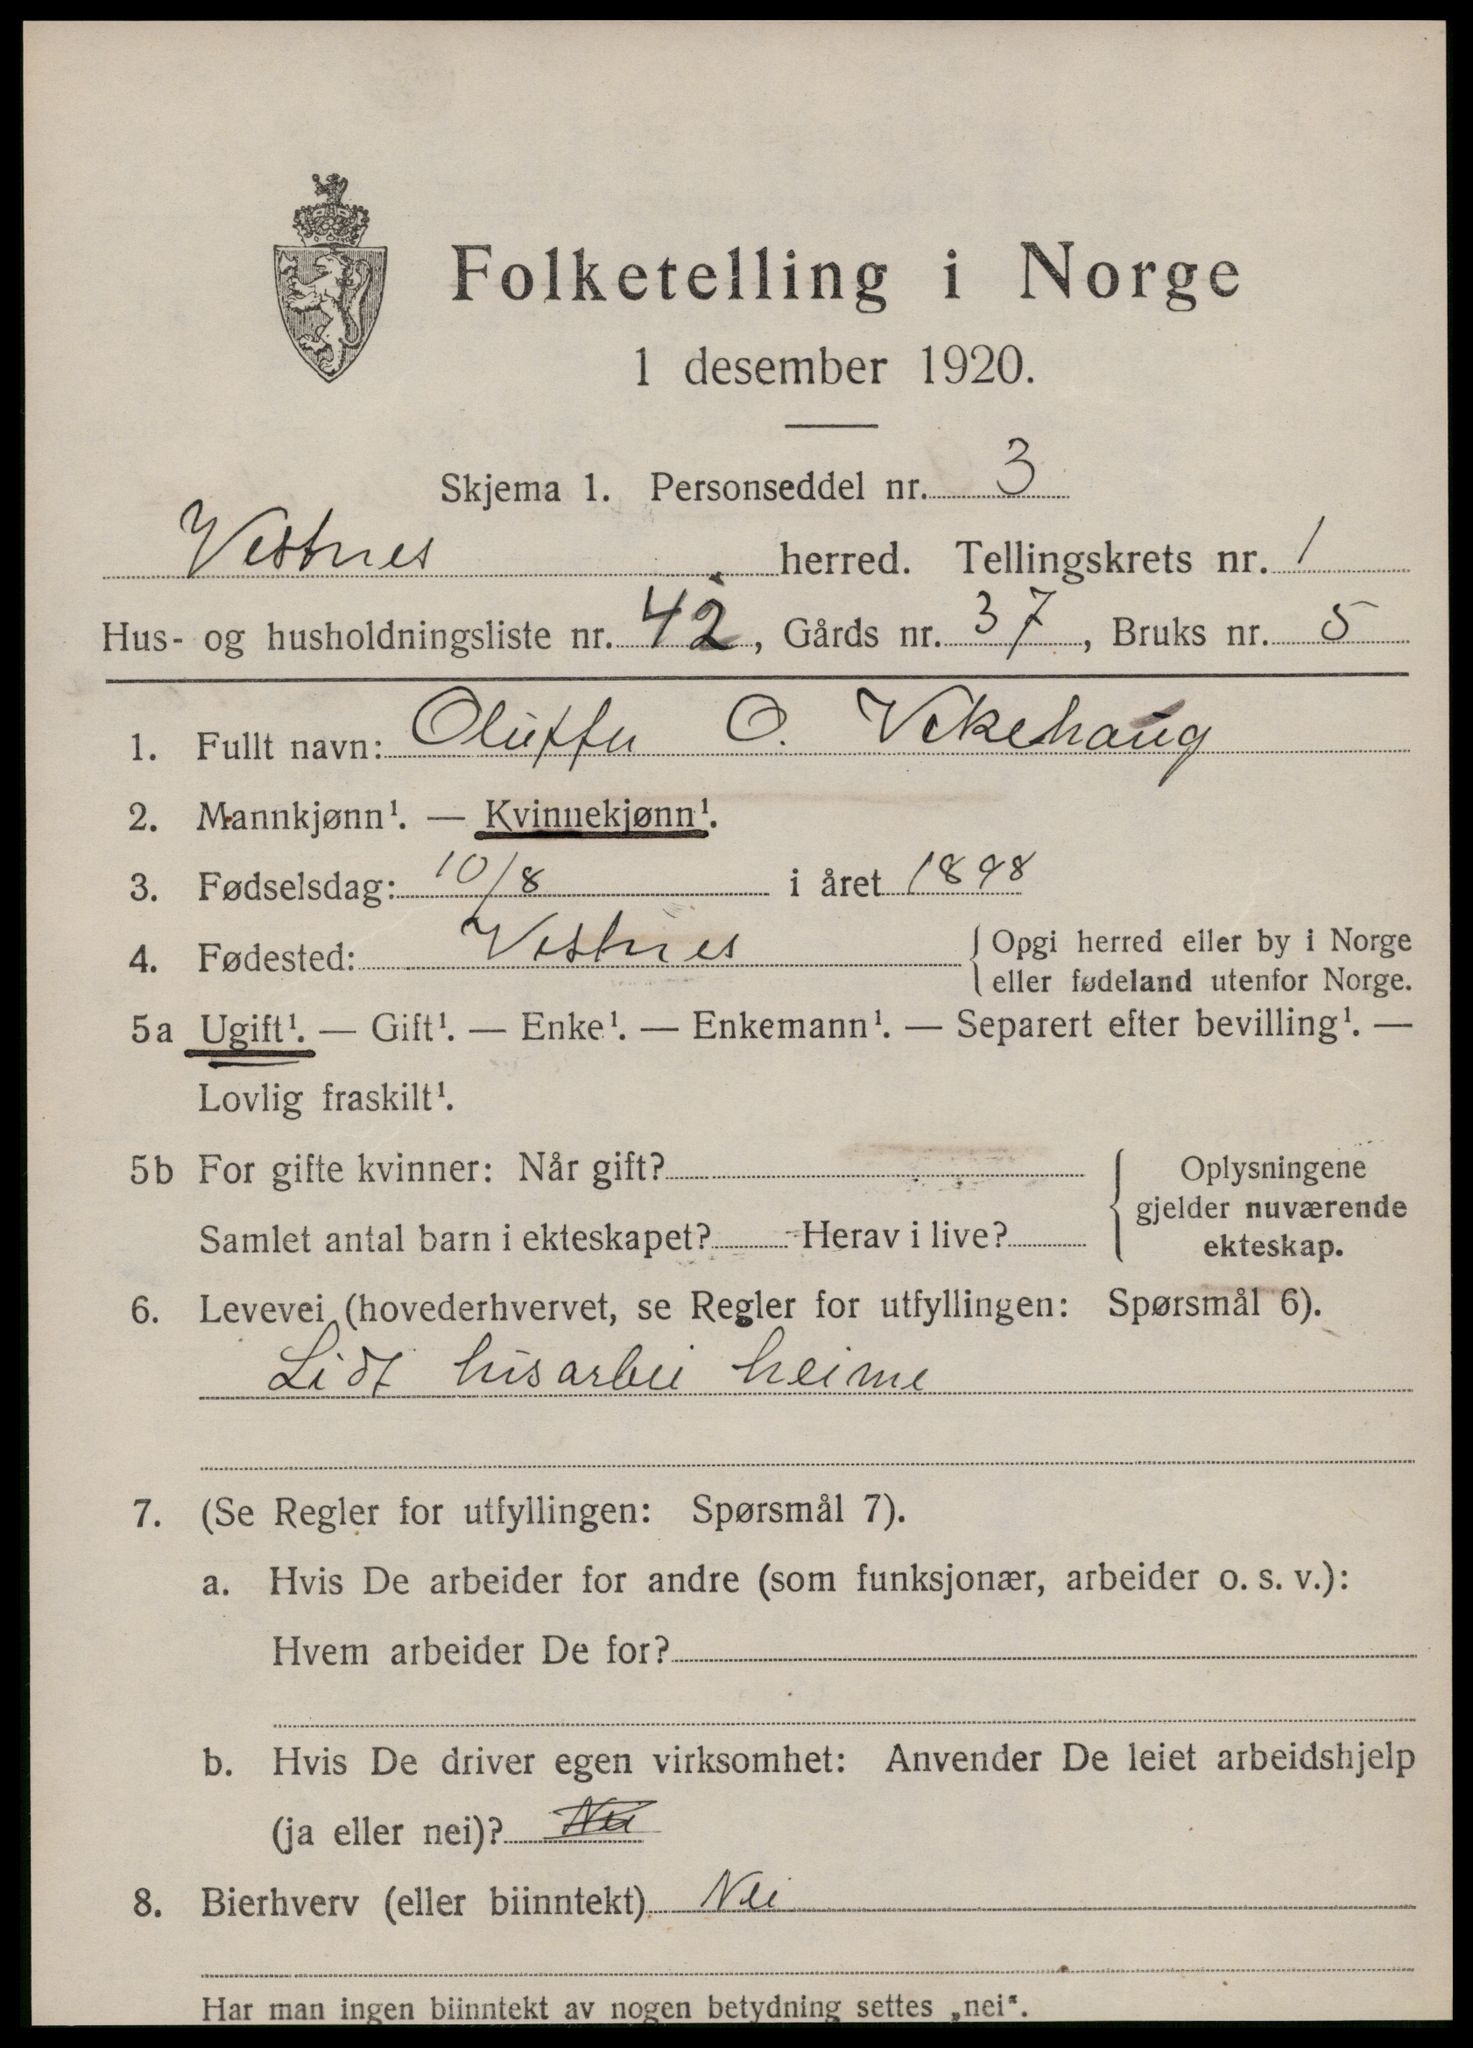 Folketelling i Norge
1 desember 1920.
Skjema 1. Personseddel nr. 3
Vestnes herred. Tellingskrets nr. 1
Hus- og husholdningsliste nr. 42, Gårds nr. 37, Bruks nr. 5
1. Fullt navn: O. Vikehaug
2. Mannkjønn¹. — Kvinnekjønn¹.
3. Fødselsdag: 10/8 i året 1898
4. Fødested: Vestnes { Opgi herred eller by i Norge
eller fødeland utenfor Norge.
5a Ugift¹. — Gift¹. — Enke¹. — Enkemann¹. — Separert efter bevilling¹. —
Lovlig fraskilt¹.
5b For gifte kvinner: Når gift?
Samlet antal barn i ekteskapet? Herav i live?
Oplysningene
gjelder nuværende
ekteskap.
6. Levevei (hovederhvervet, se Regler for utfyllingen: Spørsmål 6).
Lidt husarbei heime
7. (Se Regler for utfyllingen: Spørsmål 7).
a. Hvis De arbeider for andre (som funksjonær, arbeider o. s. v.):
Hvem arbeider De for?
b. Hvis De driver egen virksomhet: Anvender De leiet arbeidshjelp
(ja eller nei)? Nei
8. Bierhverv (eller biinntekt) Nei
Har man ingen biinntekt av nogen betydning settes „nei".